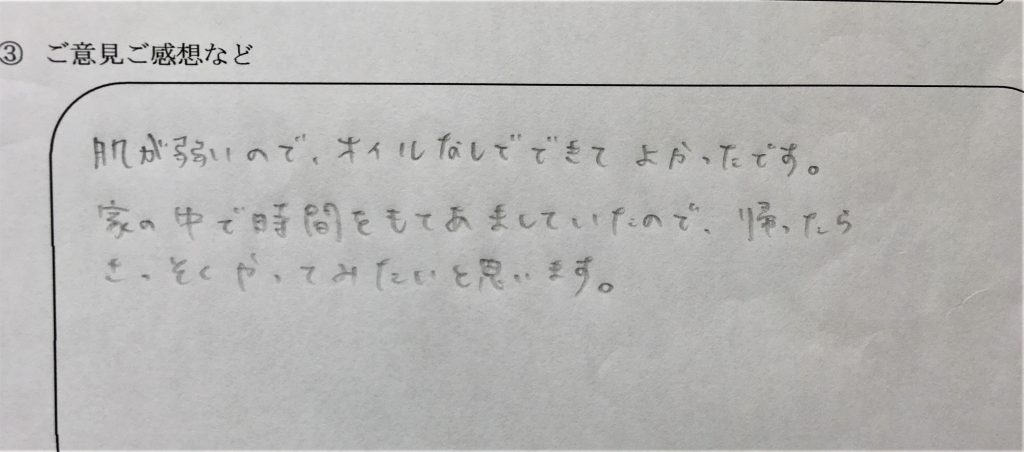 ③ ご意見ご感想など
肌が弱いので、オイルなしでできて よかったです。
家の中で時間をもてあましていたので、帰ったら
さっそくやってみたいと思います。